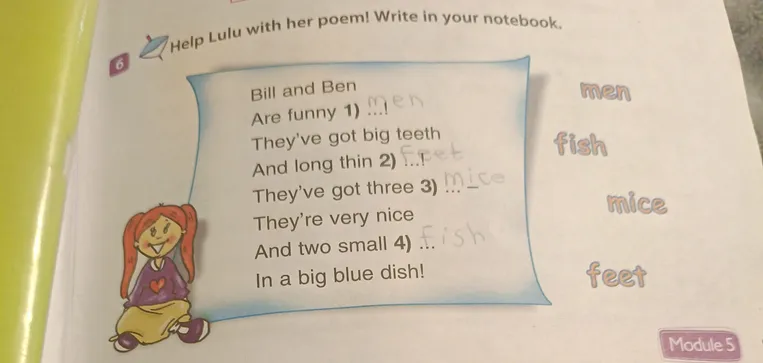 6 Help Lulu with her poem! Write in your notebook.
Bill and Ben
Are funny 1) ...! men
They've got big teeth
And long thin 2) ...! feet
They've got three 3) ... – mice
They're very nice
And two small 4) ... fish
In a big blue dish!
men
fish
mice
feet
Module 5